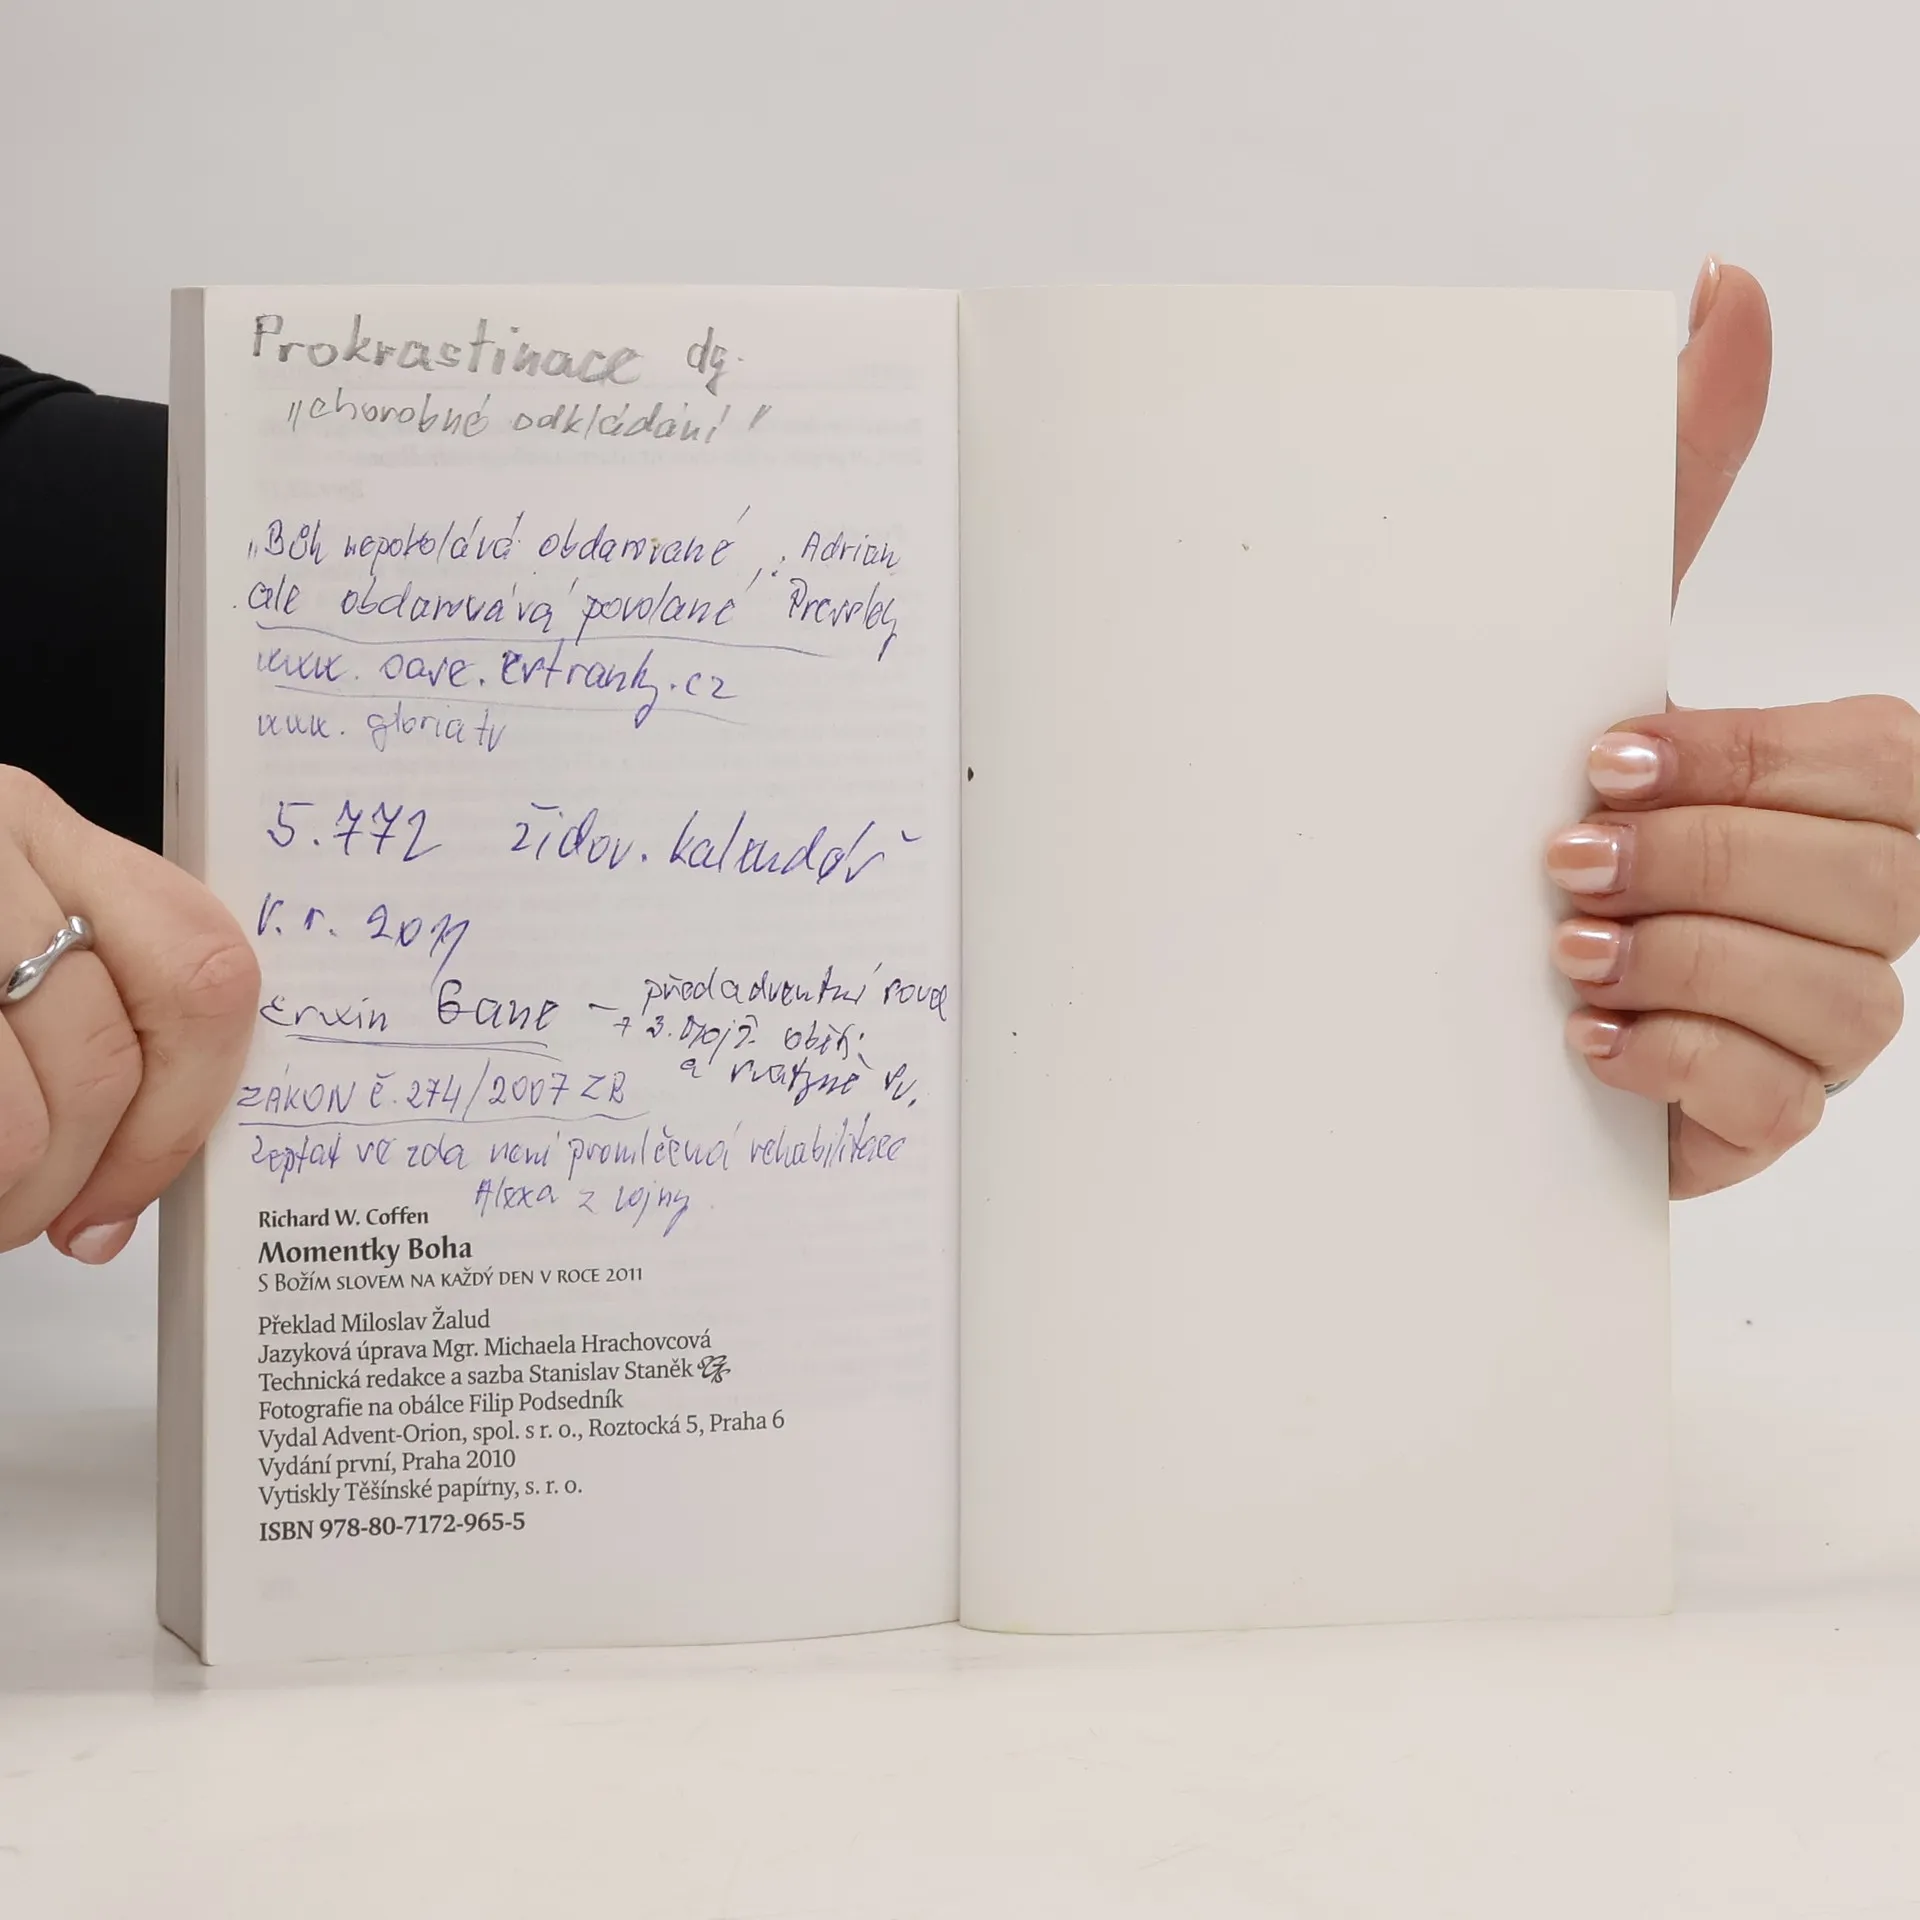 Prokrastinace dg.
„chorobné odkládání"
„Bůh nepovolává obdarované, : Adrian
ale obdarovává povolané
www. .cz
www. gloria tv
5.772 židov. kalendář
v. r. 2011
Erwin Gane → předadventní
→ 3. Mojž.
a
ZÁKON č. 274/2007 ZB
Zeptat se zda není promlčená rehabilitace
z vojny
Richard W. Coffen
Momentky Boha
S Božím slovem na každý den v roce 2011
Překlad Miloslav Žalud
Jazyková úprava Mgr. Michaela Hrachovcová
Technická redakce a sazba Stanislav Staněk
Fotografie na obálce Filip Podsedník
Vydal Advent-Orion, spol. s r. o., Roztocká 5, Praha 6
Vydání první, Praha 2010
Vytiskly Těšínské papírny, s. r. o.
ISBN 978-80-7172-965-5